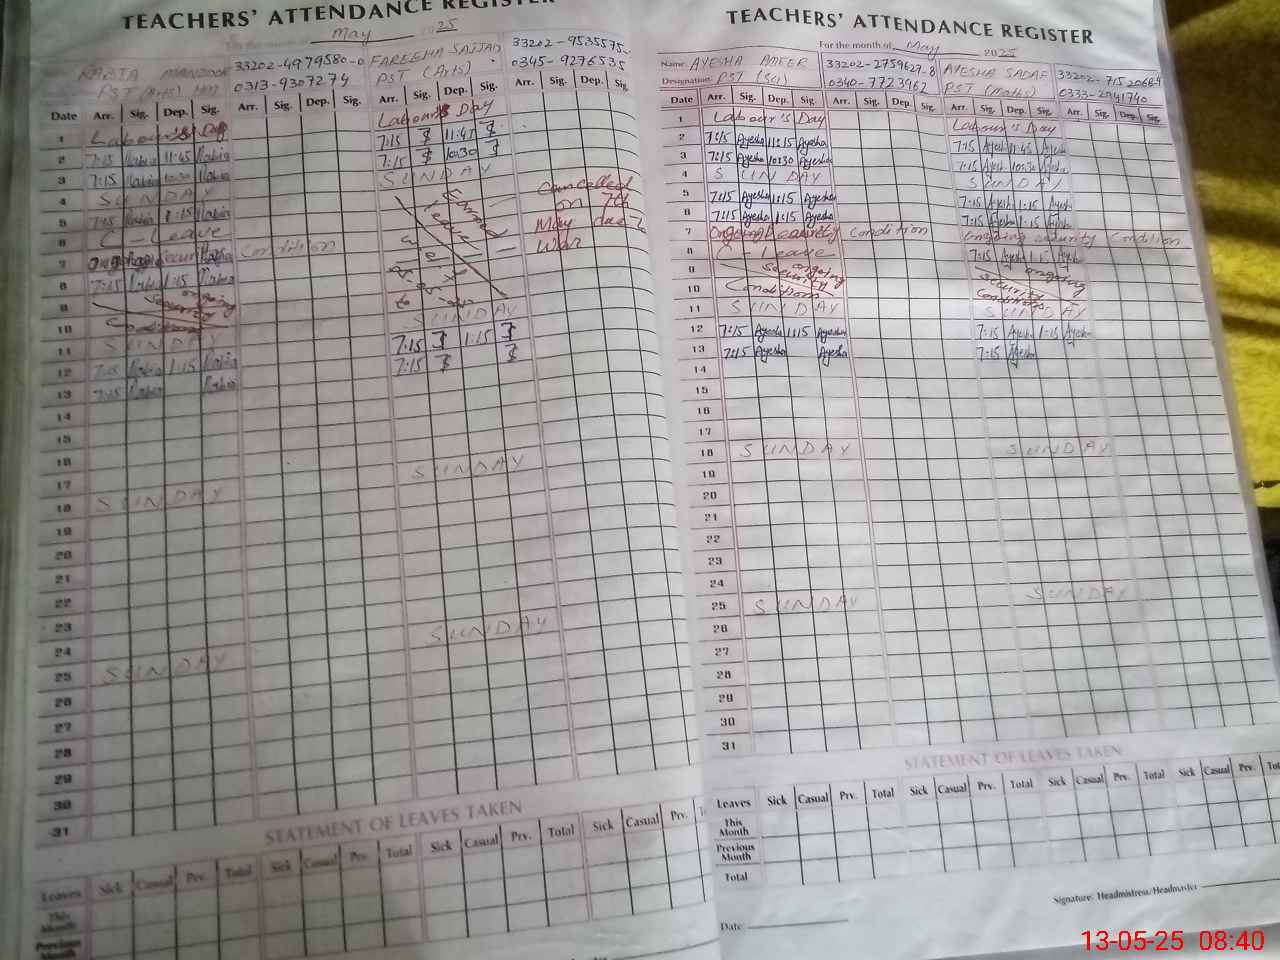 TEACHERS' ATTENDANCE REGISTER
For the month of May 2025
RABIA MANZOOR 33202-4979580-0 FAREEHA SAJJAD 33202-9535575-
PST (Arts) 0313-9307274 PST (Arts) 0345-9276535
Date Arr. Sig. Dep. Sig. Arr. Sig. Dep. Sig. Arr. Sig. Dep. Sig. Arr. Sig. Dep. Sig.
1 Labour's Day Labour's Day
2 7:15 Rabia 11:45 Rabia 7:15 11:45
3 7:15 Rabia 10:30 Rabia 7:15 10:30
4 SUNDAY SUNDAY
5 7:15 Rabia 1:15 Rabia Earned Leave Cancelled on 7th May due to War
6 C-Leave
7 Ongoing Security Condition
8 7:15 Rabia 1:15 Rabia
9 ongoing Security
10 Conditions
11 SUNDAY SUNDAY
12 7:15 Rabia 1:15 Rabia 7:15 1:15
13 7:15 Rabia Rabia 7:15
14
15
16
17
18 SUNDAY SUNDAY
19
20
21
22
23
24
25 SUNDAY SUNDAY
26
27
28
29
30
31
STATEMENT OF LEAVES TAKEN
Leaves Sick Casual Prv. Total Sick Casual Prv. Total Sick Casual Prv. Total Sick Casual Prv.
This Month
Previous Month
TEACHERS' ATTENDANCE REGISTER
For the month of May 2025
Name: AYESHA AMEER 33202-2759627-8 AYESHA SADAF
Designation: PST (Sci) 0340-7723962 PST (Maths) 0333-2941740
Date Arr. Sig. Dep. Sig. Arr. Sig. Dep. Sig. Arr. Sig. Dep. Sig. Arr. Sig. Dep. Sig.
1 Labour's Day Labour's Day
2 7:15 Ayesha 11:15 Ayesha 7:15 Ayesh 11:45 Ayesh
3 7:15 Ayesha 10:30 Ayesha 7:15 Ayesh 10:30 Ayesh
4 SUNDAY SUNDAY
5 7:15 Ayesha 1:15 Ayesha 7:15 Ayesh 1:15 Ayesh
6 7:15 Ayesha 1:15 Ayesha 7:15 Ayesh 1:15 Ayesh
7 Ongoing Security condition Ongoing security Condition
8 C-Leave 7:15 Ayesh 1:15 Ayesh
9 ongoing Security ongoing Security
10 Conditions Conditions
11 SUNDAY SUNDAY
12 7:15 Ayesha 1:15 Ayesha 7:15 Ayesh 1:15 Ayesh
13 7:15 Ayesha Ayesha 7:15 Ayesh
14
15
16
17
18 SUNDAY SUNDAY
19
20
21
22
23
24
25 SUNDAY SUNDAY
26
27
28
29
30
31
STATEMENT OF LEAVES TAKEN
Leaves Sick Casual Prv. Total Sick Casual Prv. Total Sick Casual Prv. Total Sick Casual Prv.
This Month
Previous Month
Total
Signature: Headmistress/Headmaster
Date:
13-05-25 08:40